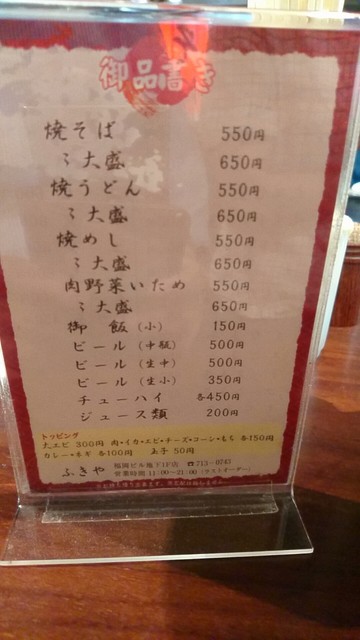 御品書き
焼そば 550円
〃大盛 650円
焼うどん 550円
〃大盛 650円
焼めし 550円
〃大盛 650円
肉野菜いため 550円
〃大盛 650円
御飯(小) 150円
ビール(中瓶) 500円
ビール(生中) 500円
ビール(生小) 350円
チューハイ 各450円
ジュース類 200円
トッピング
大エビ 300円 肉・イカ・エビ・チーズ・コーン・もち 各150円
カレー・ネギ 各100円 玉子 50円
ふきや 福岡ビル地下1F店 ☎713-8743
営業時間 11:00~21:00(ラストオーダー)